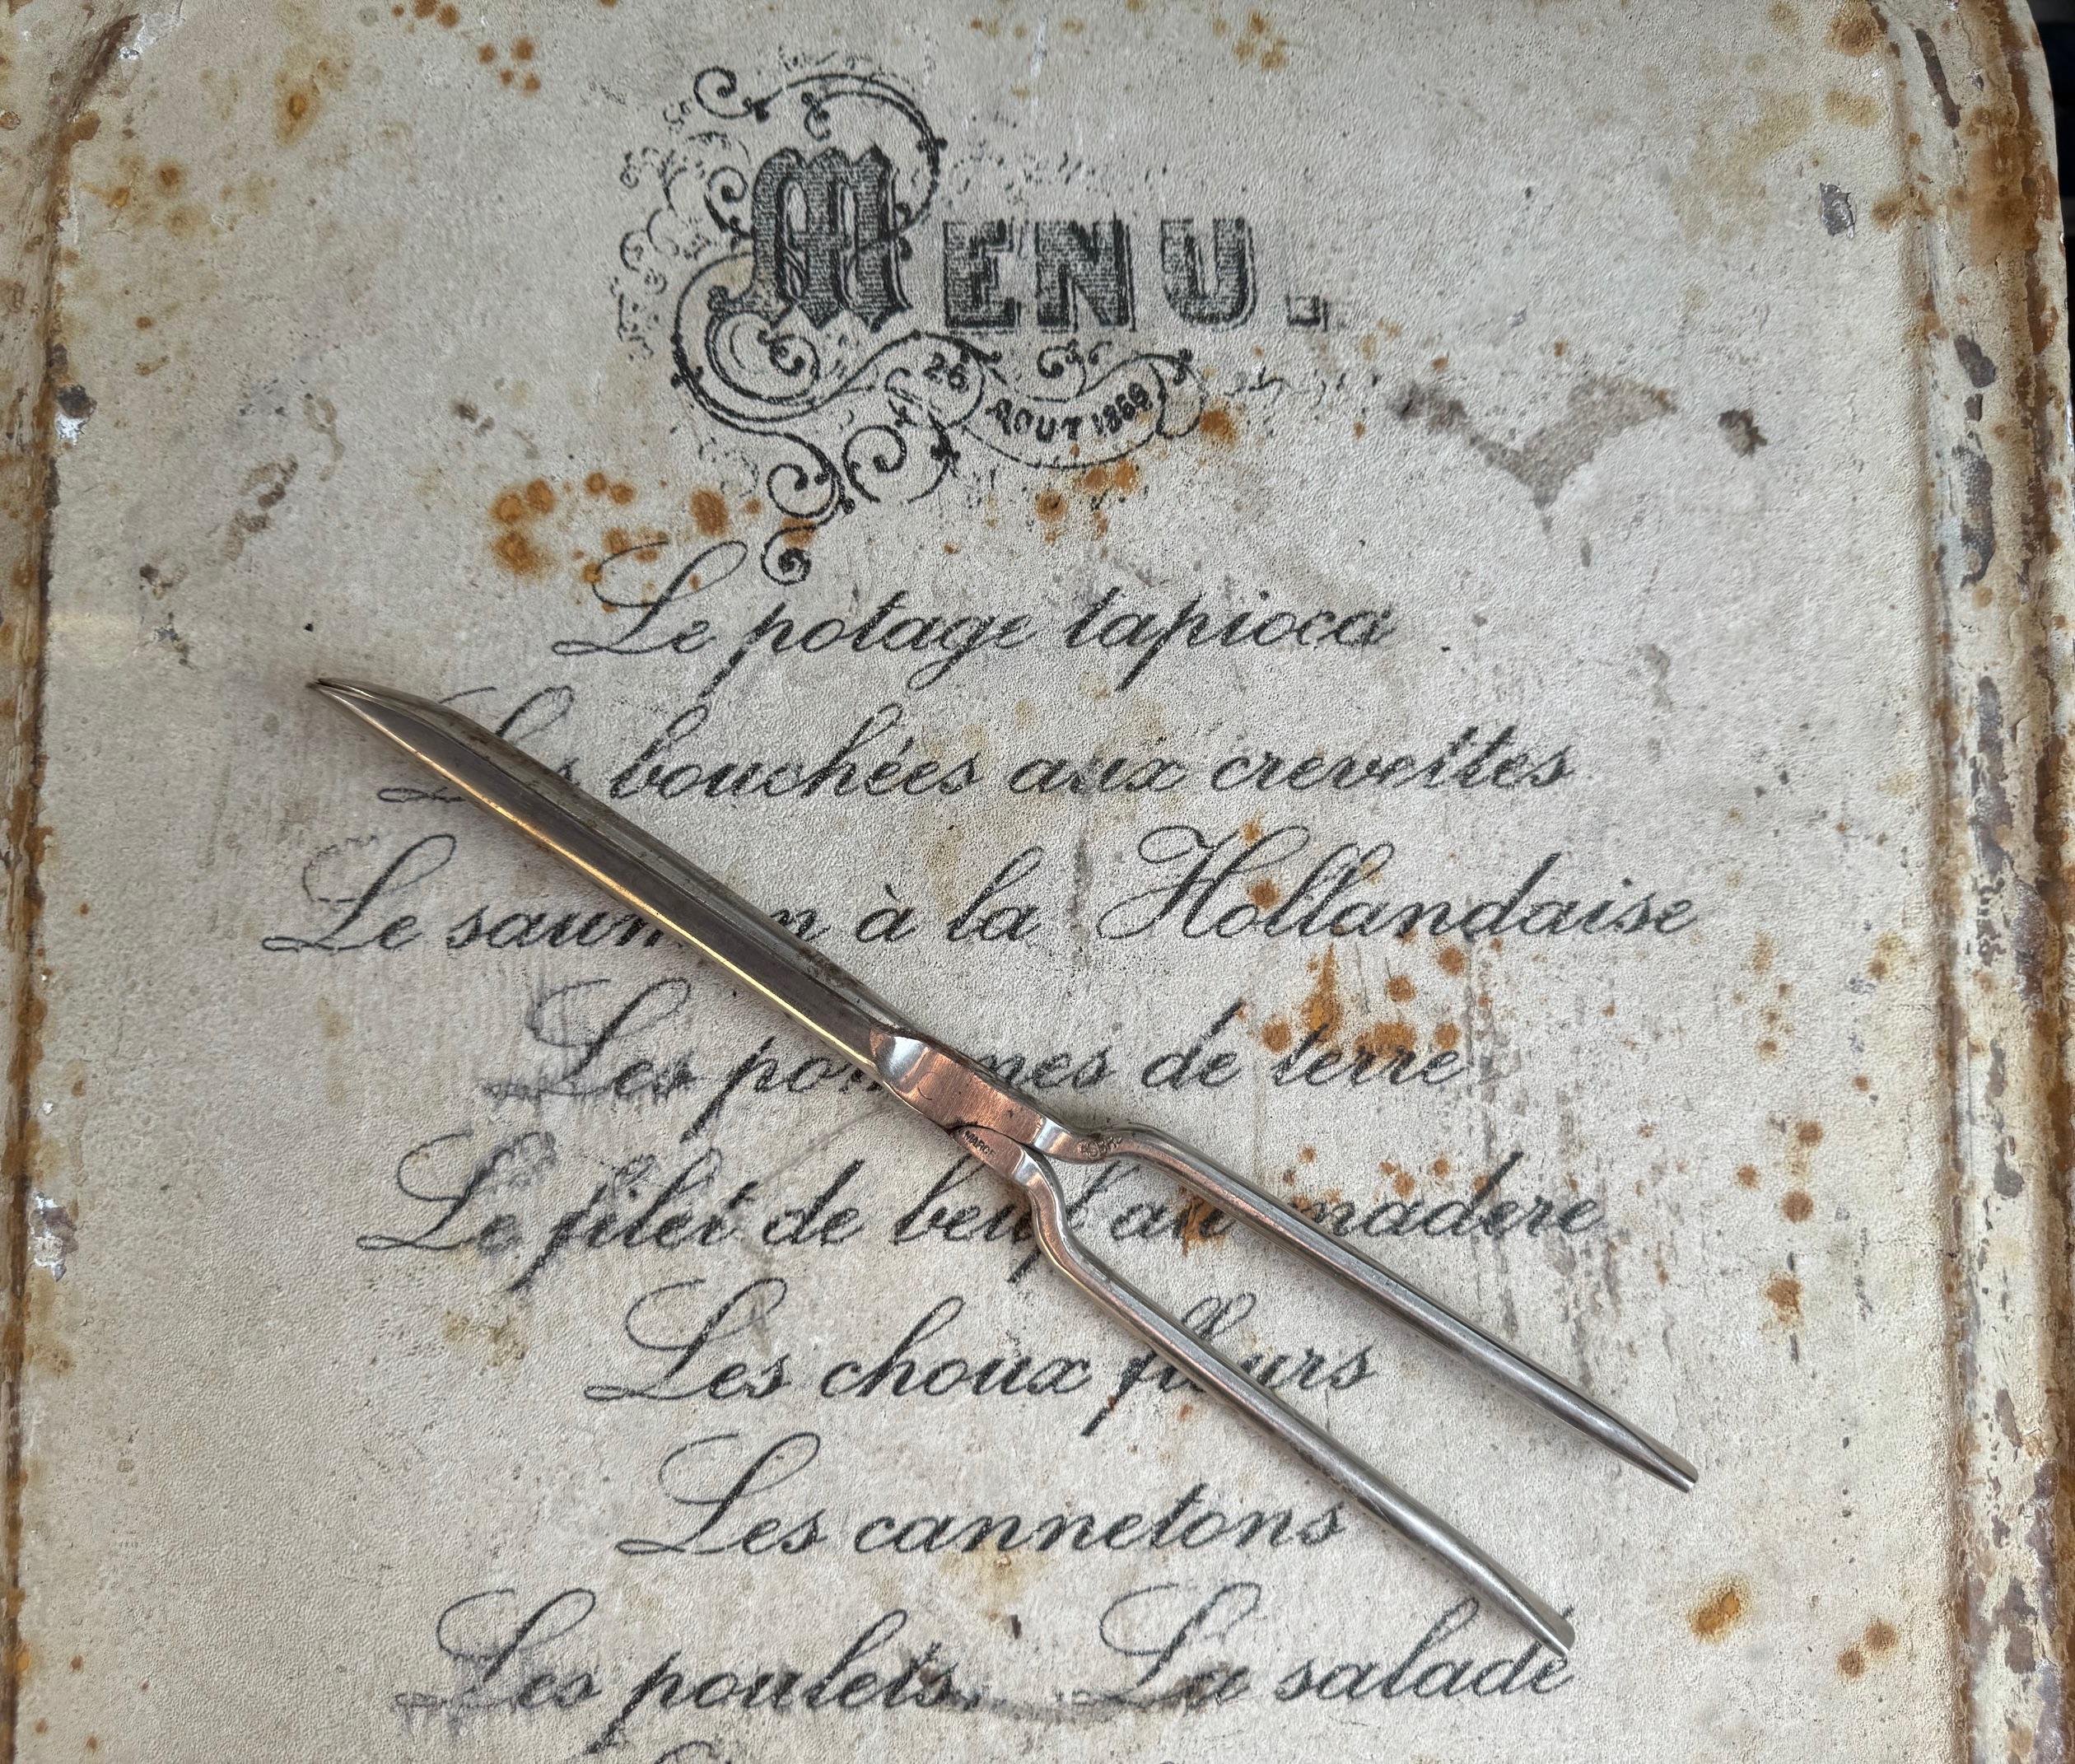 MENU.
26 AOUT 1869
Le potage tapioca.
bouchées aux crevettes
Le à la Hollandaise
Les de terre
Le filet de au madere
Les choux
Les cannetons
Les poulets. La salade
MARCA